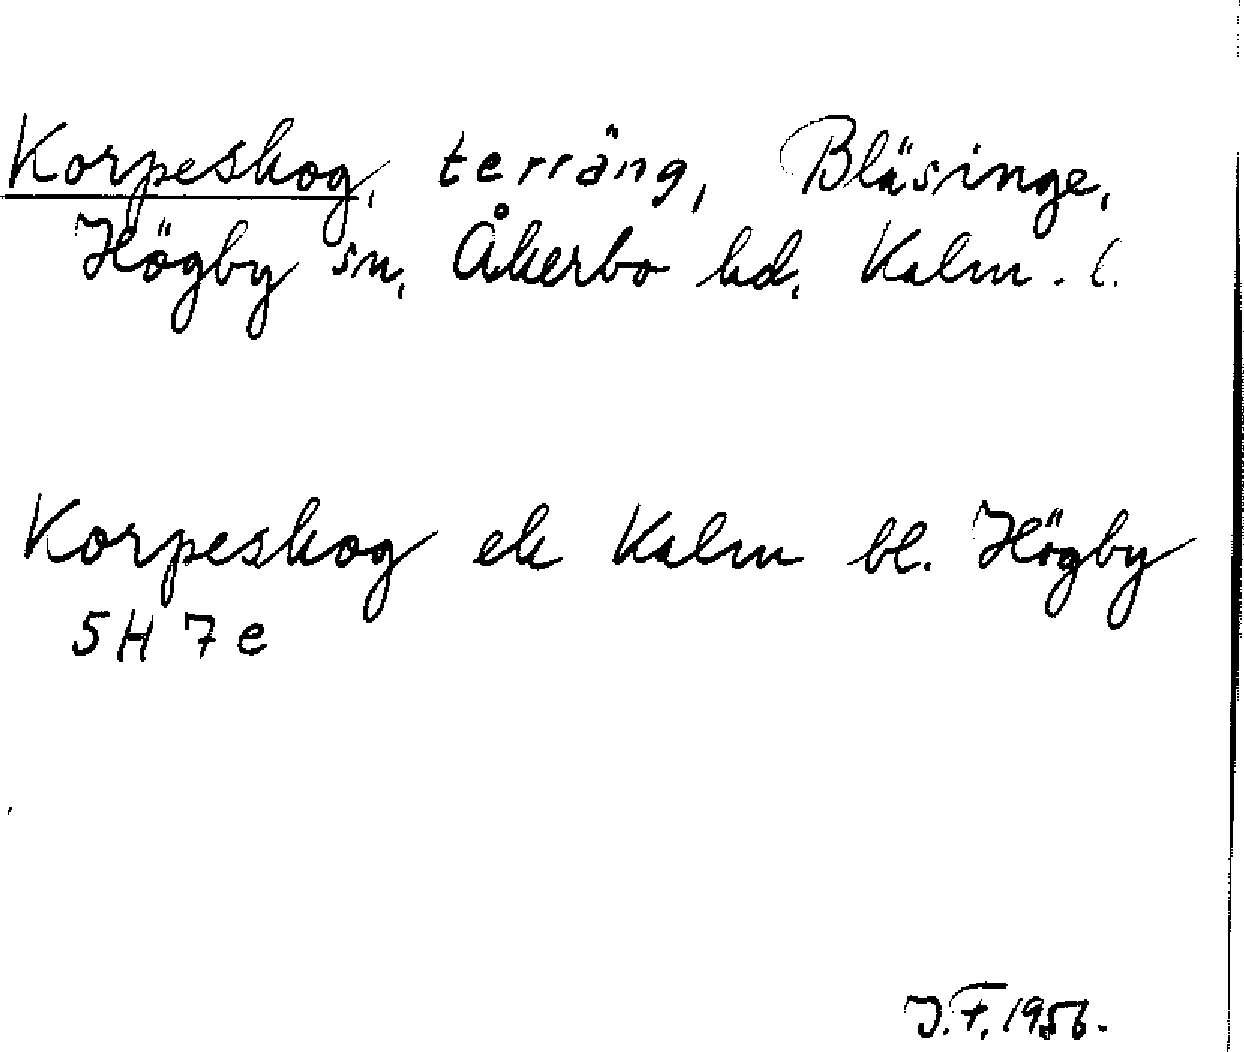 Korpeskog, terräng, Bläsinge,
Högby sn, Åkerbo hd, Kalm. l.
Korpeskog ek Kalm bl. Högby
5H 7e
J.F. 1956.